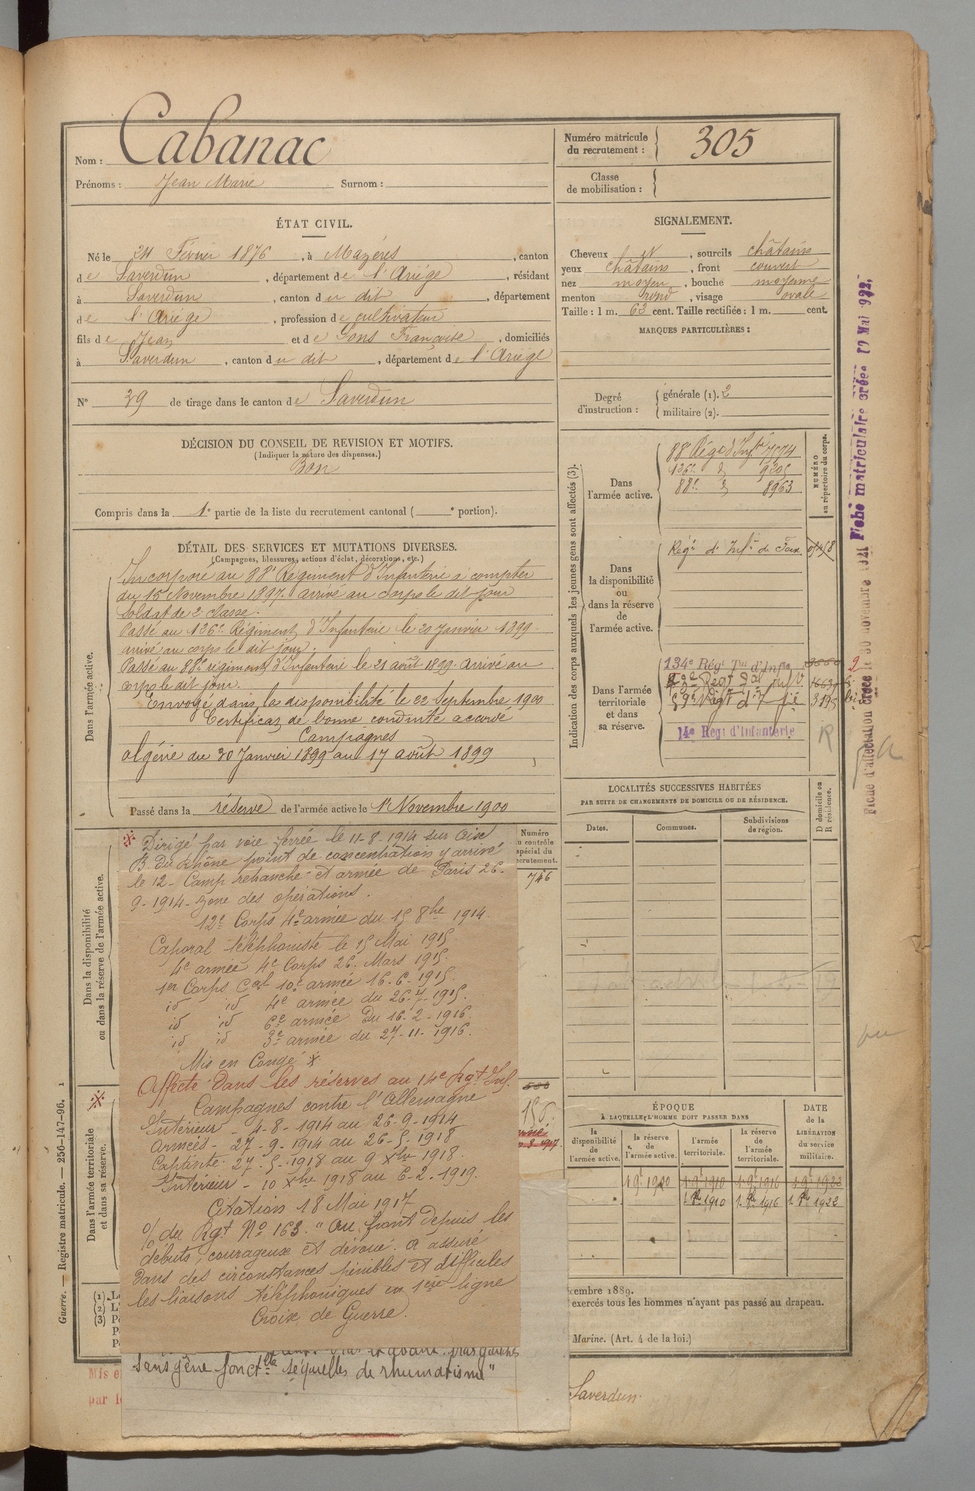 Nom : Cabanac
Prénoms : Jean Marie Surnom :
Numéro matricule du recrutement : 305
Classe de mobilisation :
ÉTAT CIVIL.
Né le 24 Février 1876, à Mazères, canton
de Saverdun, département de l'Ariège, résidant
à Saverdun, canton du dit, département
de l'Ariège, profession de cultivateur
fils de Jean et de Pons Françoise, domiciliés
à Saverdun, canton du dit, département de l'Ariège
N° 39 de tirage dans le canton de Saverdun
SIGNALEMENT.
Cheveux N, sourcils châtains
yeux châtains, front couvert
nez moyen, bouche moyenne
menton rond, visage ovale
Taille : 1 m. 63 cent. Taille rectifiée : 1 m. cent.
MARQUES PARTICULIÈRES :
Degré d'instruction : générale (1). 2
militaire (2).
DÉCISION DU CONSEIL DE REVISION ET MOTIFS.
(Indiquer la nature des dispenses.)
Bon
Compris dans la 1e partie de la liste du recrutement cantonal ( e portion).
DÉTAIL DES SERVICES ET MUTATIONS DIVERSES.
(Campagnes, blessures, actions d'éclat, décorations, etc.)
Dans l'armée active.
Incorporé au 88e Régiment d'Infanterie à compter
du 16 Novembre 1897. arrivé au corps le dit jour
soldat de 2e classe.
Passé au 136e Régiment d'Infanterie le 20 Janvier 1899.
arrivé au corps le dit jour.
Passé au 88e régiment d'Infanterie le 21 août 1899. arrivé au
corps le dit jour.
Envoyé dans la disponibilité le 22 Septembre 1900
Certificat de bonne conduite accordé
Campagnes
Algérie du 30 Janvier 1899 au 17 août 1899
Passé dans la réserve de l'armée active le 1er Novembre 1900
Dans la disponibilité ou dans la réserve de l'armée active.
Dirigé par voie ferrée le 11-8-1914 sur Aix
B. du Rhône point de concentration y arrivé
le 12. Camp retranché et armée de Paris 26-
9-1914 zone des opérations.
12e Corps 4e armée du 15 8bre 1914.
Caporal téléphoniste le 15 Mai 1915
4e armée 4e Corps 26 Mars 1915
1er Corps Cal 10e armée 16-6-1915
id id 4e armée du 26-7-1915.
id id 6e armée du 16-2-1916
id id 3e armée du 27-11-1916.
Mis en Congé
Affecté dans les réserves au 14e Rgt Inf.
Campagnes contre l'Allemagne
Intérieur - 4-8-1914 au 26-9-1914
armées - 27-9-1914 au 26-5-1918
Captivité 27-5-1918 au 9 Xbre 1918.
Intérieur - 10 Xbre 1918 au 6-2-1919.
Citation 18 Mai 1917
O/ du Rgt N° 163. "Au front depuis les
débuts, courageux et dévoué. A assuré
dans des circonstances pénibles et difficiles
les liaisons téléphoniques en 1ère ligne
Croix de Guerre.
sans gêne fonctelle séquelles de rhumatisme"
Dans l'armée territoriale et dans sa réserve.
Numéro
746
Indication des corps auxquels les jeunes gens sont affectés (3).
NUMÉRO au répertoire du corps.
Dans l'armée active.
88e Régt d'Infie 7574
136e d° 9305
88e d° 8963
Dans la disponibilité ou dans la réserve de l'armée active.
Régt d'Infie de Foix
Dans l'armée territoriale et dans sa réserve.
134e Régt Tal d'Infie
14e Régt d'Infanterie
R
LOCALITÉS SUCCESSIVES HABITÉES
PAR SUITE DE CHANGEMENTS DE DOMICILE OU DE RÉSIDENCE.
D domicile ou R résidence.
Dates. Communes. Subdivisions de région.
ÉPOQUE
À LAQUELLE L'HOMME DOIT PASSER DANS
DATE de la LIBÉRATION du service militaire.
la disponibilité de l'armée active.
la réserve de l'armée active.
l'armée territoriale.
la réserve de l'armée territoriale.
1 9e 1900 1 9e 1910 1 9e 1916 1 9e 1922
1 8e 1910 1 8e 1916 1 8e 1922
cembre 1889.
exercés tous les hommes n'ayant pas passé au drapeau.
Marine. (Art. 4 de la loi.)
Saverdun.
(1)
(2)
(3)
Mis e
par l
Guerre. — Registre matricule. — 256-147-96. 1
Fiche matriculaire créée
Fiche d'affectation créée le 30 novembre 1921